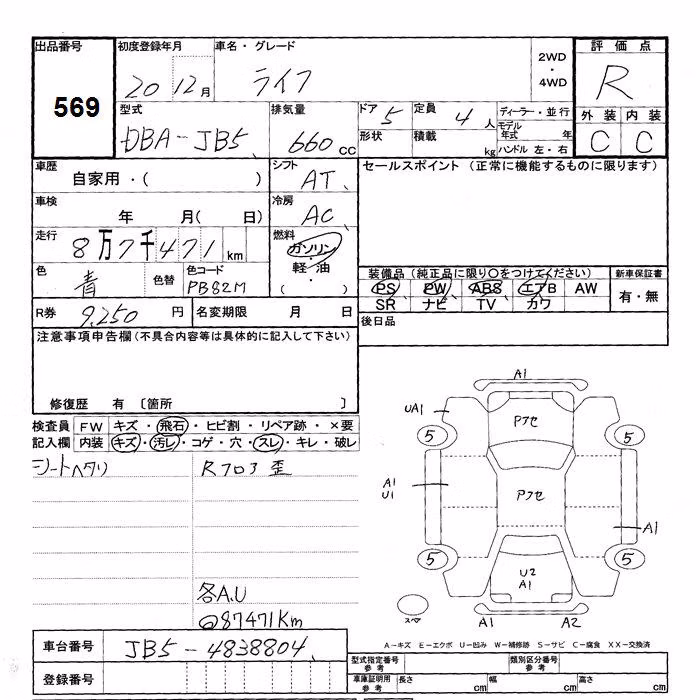 出品番号
569
初度登録年月
20 12月
車名・グレード
ライフ
2WD
・
4WD
評価点
R
外装 内装
C C
型式
DBA-JB5
排気量
660cc
ドア 5
定員 4人
ディーラー・並行
モデル年式 年
形状
積載 kg
ハンドル 左・右
車歴
自家用・( )
シフト
AT
セールスポイント (正常に機能するものに限ります)
車検
年 月( 日)
冷房
AC
走行
8万7千471km
燃料
ガソリン
・
軽・油
( )
色
青
色替
色コード
PB82M
装備品(純正品に限り○をつけてください)
PS PW ABS エアB AW
SR ナビ TV カワ
新車保証書
有・無
R券 9,250円
名変期限 月 日
後日品
注意事項申告欄(不具合内容等は具体的に記入して下さい)
修復歴 有 〔箇所 〕
検査員記入欄
FW キズ・飛石・ヒビ割・リペア跡・×要
内装 キズ・汚レ・コゲ・穴・スレ・キレ・破レ
シートヘタリ
Rフロア歪
各A.U
@87471Km
A1
UA1
Pアセ
5 5
A1
U1
Pアセ
A1
5 5
U2
A1
スペア
A1 A2
A-キズ E-エクボ U-凹み W-補修跡 S-サビ C-腐食 XX-交換済
車台番号 JB5-4838804
登録番号
型式指定番号 参考
類別区分番号 参考
車庫証明用 参考
長さ cm
幅 cm
高さ cm